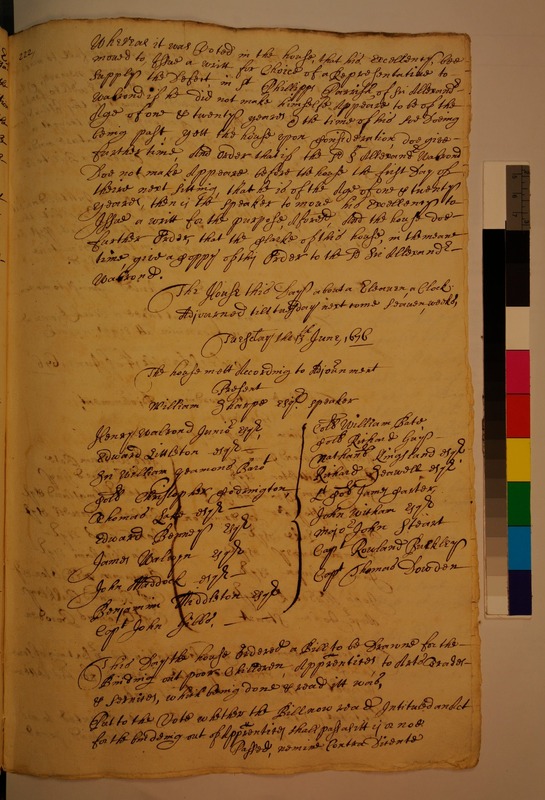 222.
Whereas it was Voted in the house, that his Excellency bee
moved to Issue a writt for Choice of a Representative to
supply the Defect in St Phillipps Parrish of Sir Alexand
Walrond if he did not make himselfe Appeare to be of the
Age of one & twenty yeares the time of his soe Doeing
being past, yett the house upon Consideration doe give
further time, And order that if the Sd Sr Alexand Walrond
Doe not make Appeare before the house the first Day of
theire next sitting, that he is of the Age of one & twenty
yeares, then is the speaker to move his Excellency to
Issue a writt for the purpose Aforesd And the house doe
further Order, that the Clarke of this house, in the meane
time give a Coppy of this Order to the Sd Sir Alexand
Walrond.
The House this Day about a Eleaven a Clock
Adjourned till tuesday next come seaven weekes
Tuesday the June, 1676
The house mett According to Adjournment
Present
William Sharpe esqr. speaker
Henry Walrond Junior esqr,
Edward Littleton esqr
Sr William Yeamons Barot
Collo Christopher Codrington,
Thomas esqr
Edward esqr
James Walwyn esqr
John Maddock esqr
Benjamin Middleton esqr
Capt John Gibbs,
Collo William Bate,
Collo Richard
Nathanll Kingsland esqr
Richard Seawell esqr.
Lt Collo James Carter,
John Witham esqr
Major John Steart
Capt Rowland Bulkley
Capt Thomas Dowden
This Day the house Ordered a Bill to be Drawne for the
Binding out poore Children, Apprentices to Arts Trades
& services, which being done & read itt was,
Put to the Vote whether the Bill now read Intituled an Act
for the binding out of Apprentices shall passe as itt is or noe
Passed, nemine Contra Dicente